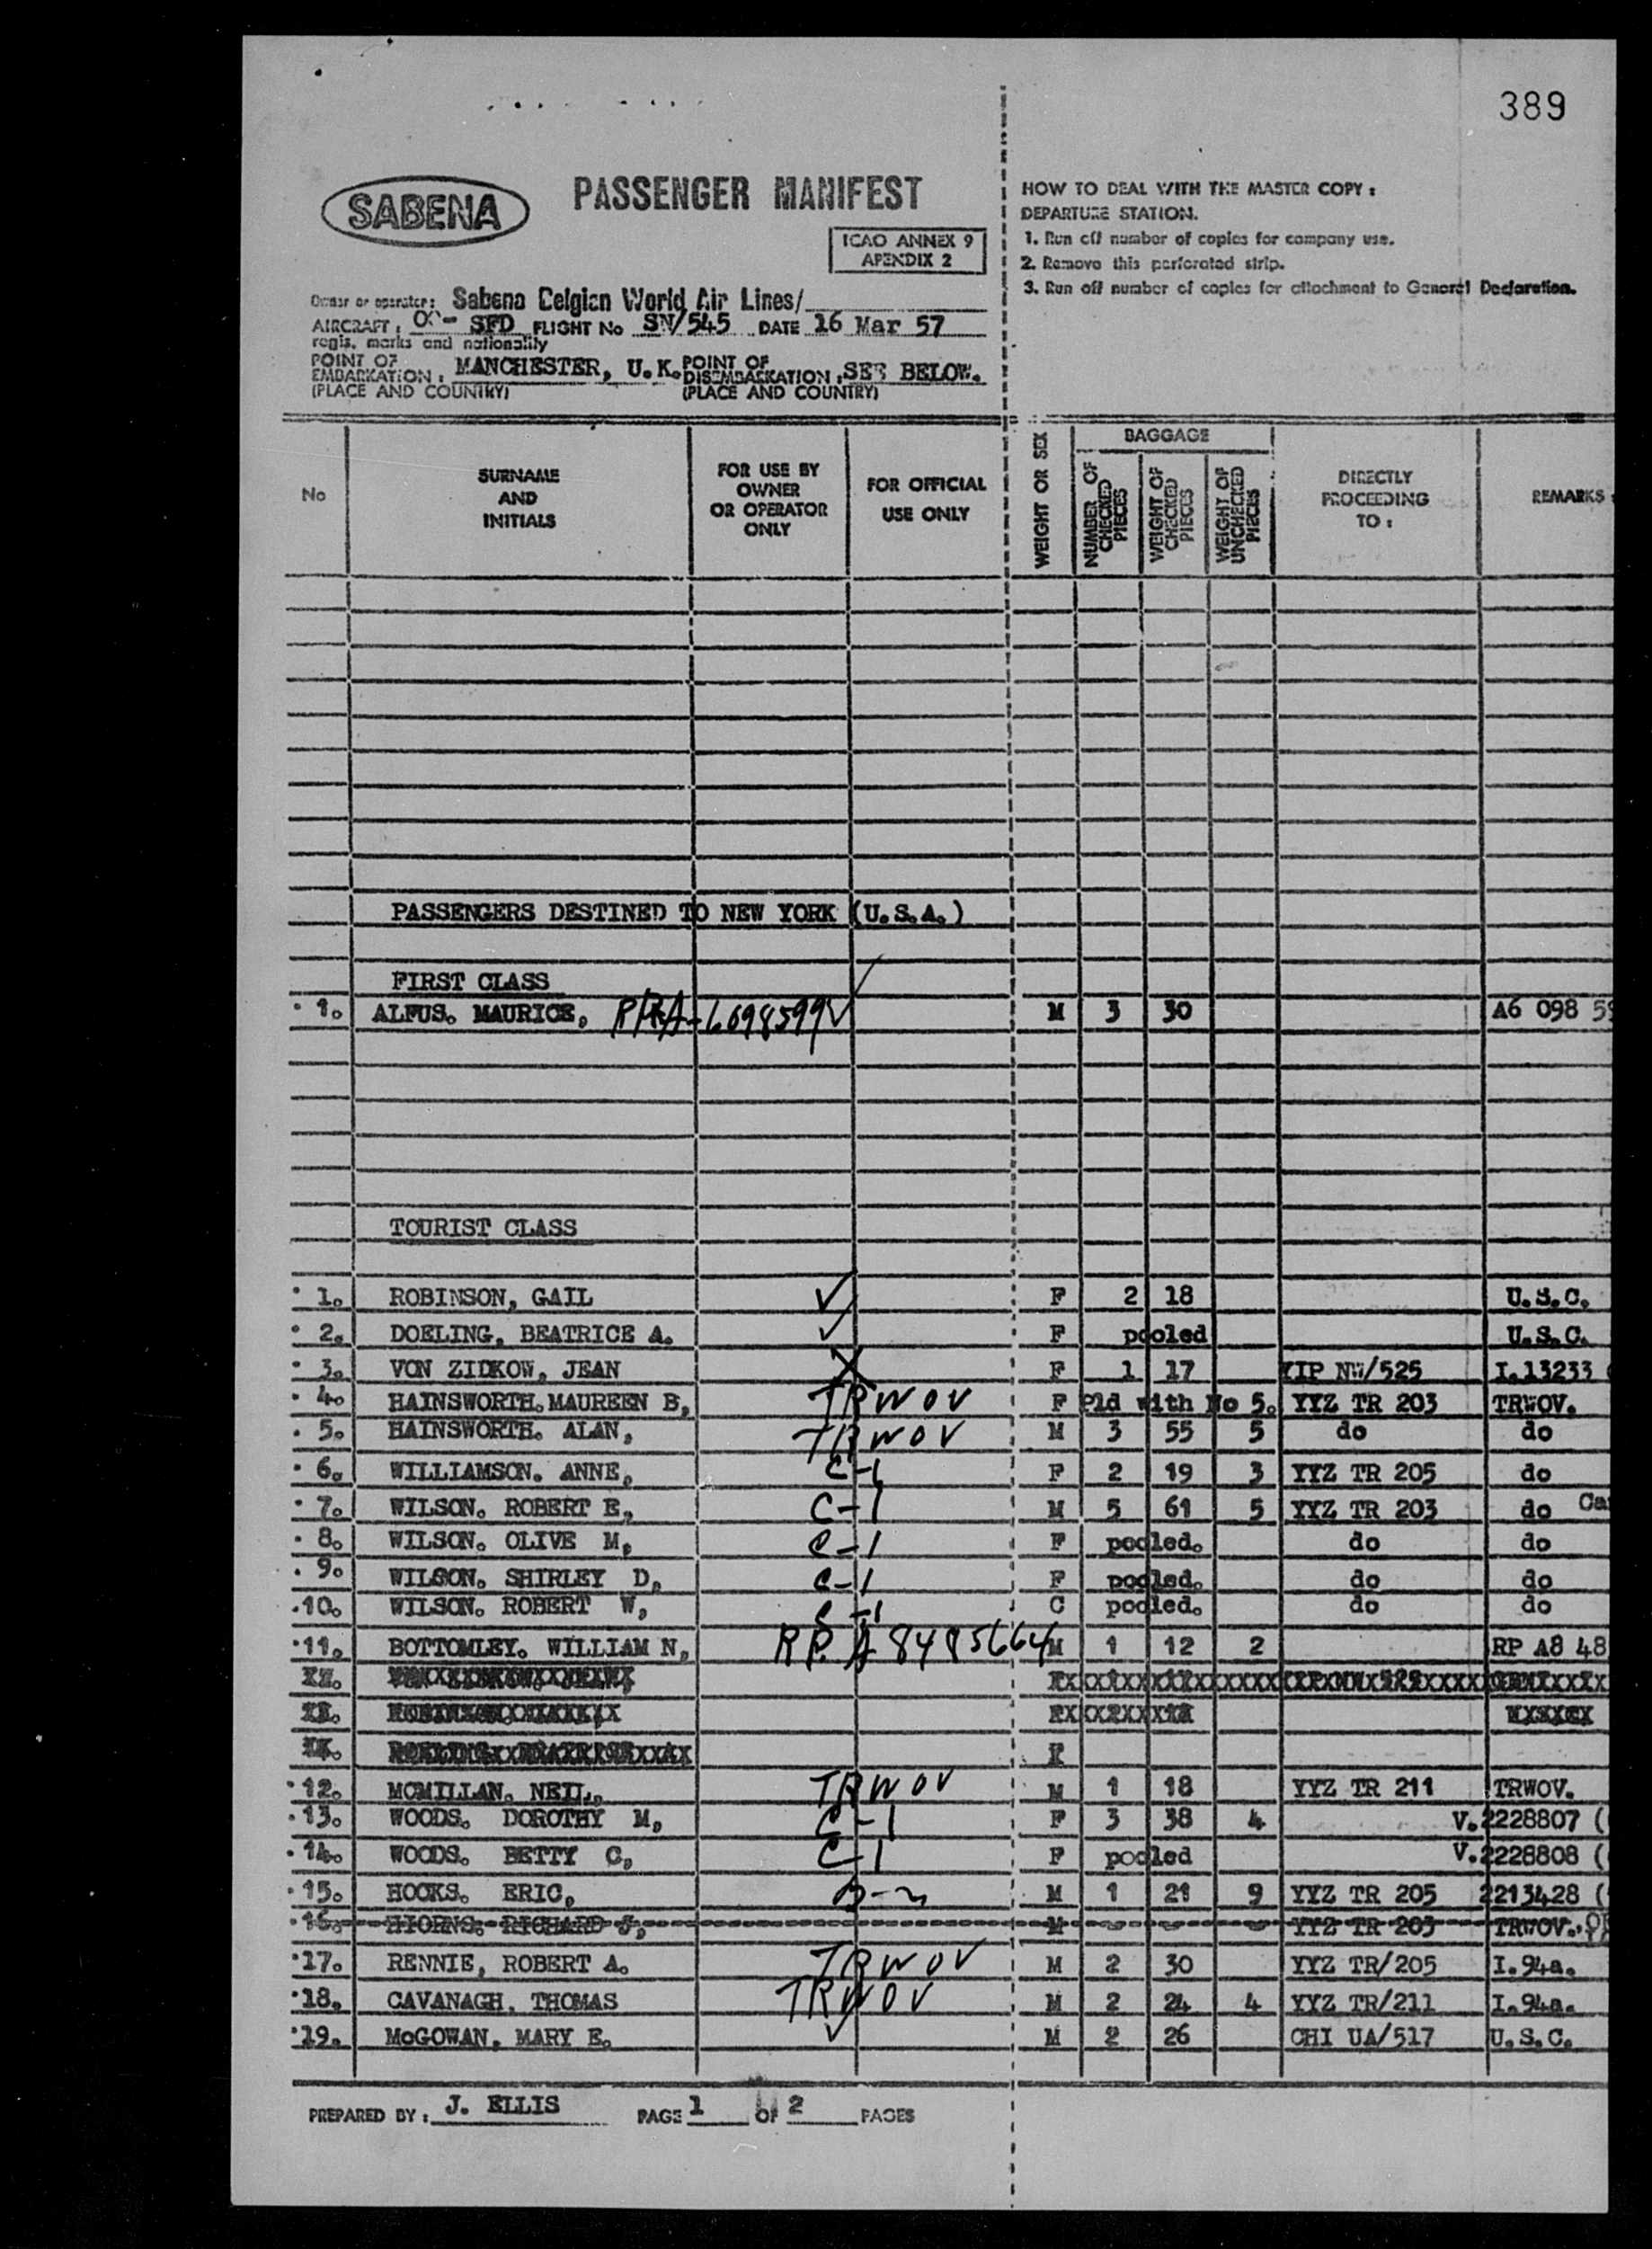 389
SABENA
PASSENGER MANIFEST
ICAO ANNEX 9
APENDIX 2
HOW TO DEAL WITH THE MASTER COPY :
DEPARTURE STATION.
1. Run off number of copies for company use.
2. Remove this perforated strip.
3. Run off number of copies for attachment to General Declaration.
Owner or operator: Sabena Belgian World Air Lines/
AIRCRAFT : OO- SFD FLIGHT No SN/545 DATE 16 Mar 57
regis. marks and nationality
POINT OF EMBARKATION : MANCHESTER, U.K. POINT OF DISEMBARKATION : SEE BELOW.
(PLACE AND COUNTRY) (PLACE AND COUNTRY)
No
SURNAME AND INITIALS
FOR USE BY OWNER OR OPERATOR ONLY
FOR OFFICIAL USE ONLY
WEIGHT OR SEX
BAGGAGE
NUMBER OF CHECKED PIECES
WEIGHT OF CHECKED PIECES
WEIGHT OF UNCHECKED PIECES
DIRECTLY PROCEEDING TO :
REMARKS :
PASSENGERS DESTINED TO NEW YORK (U.S.A.)
FIRST CLASS
1. ALFUS. MAURICE, A-6098599 M 3 30 A6 098 59
TOURIST CLASS
1. ROBINSON, GAIL F 2 18 U.S.C.
2. DOELING, BEATRICE A. F pooled U.S.C.
3. VON ZIDKOW, JEAN X F 1 17 NW/525 I.13233
4. HAINSWORTH. MAUREEN B, TRWOV F Pld with No 5. YYZ TR 203 TRWOV.
5. HAINSWORTH. ALAN, TRWOV M 3 55 5 do do
6. WILLIAMSON. ANNE, C-1 F 2 19 3 YYZ TR 205 do
7. WILSON. ROBERT E, C-1 M 5 61 5 YYZ TR 203 do Ca
8. WILSON. OLIVE M, C-1 F pooled. do do
9. WILSON. SHIRLEY D, C-1 F pooled. do do
10. WILSON. ROBERT W, C-1 C pooled. do do
11. BOTTOMLEY. WILLIAM N, RP. A 8485664 M 1 12 2 RP A8 48
12. MCMILLAN. NEIL. TRWOV M 1 18 YYZ TR 211 TRWOV.
13. WOODS. DOROTHY M, C-1 F 3 38 4 V.2228807 (
14. WOODS. BETTY C, C-1 F pooled V.2228808 (
15. HOOKS. ERIC, B-2 M 1 21 9 YYZ TR 205 2213428 (
16. HIORNS. RICHARD J, M YYZ TR 203 TRWOV.
17. RENNIE, ROBERT A. TRWOV M 2 30 YYZ TR/205 I.94a.
18. CAVANAGH, THOMAS TRWOV M 2 24 4 YYZ TR/211 I.94a.
19. McGOWAN, MARY E. M 2 26 CHI UA/517 U.S.C.
PREPARED BY : J. ELLIS PAGE 1 OF 2 PAGES